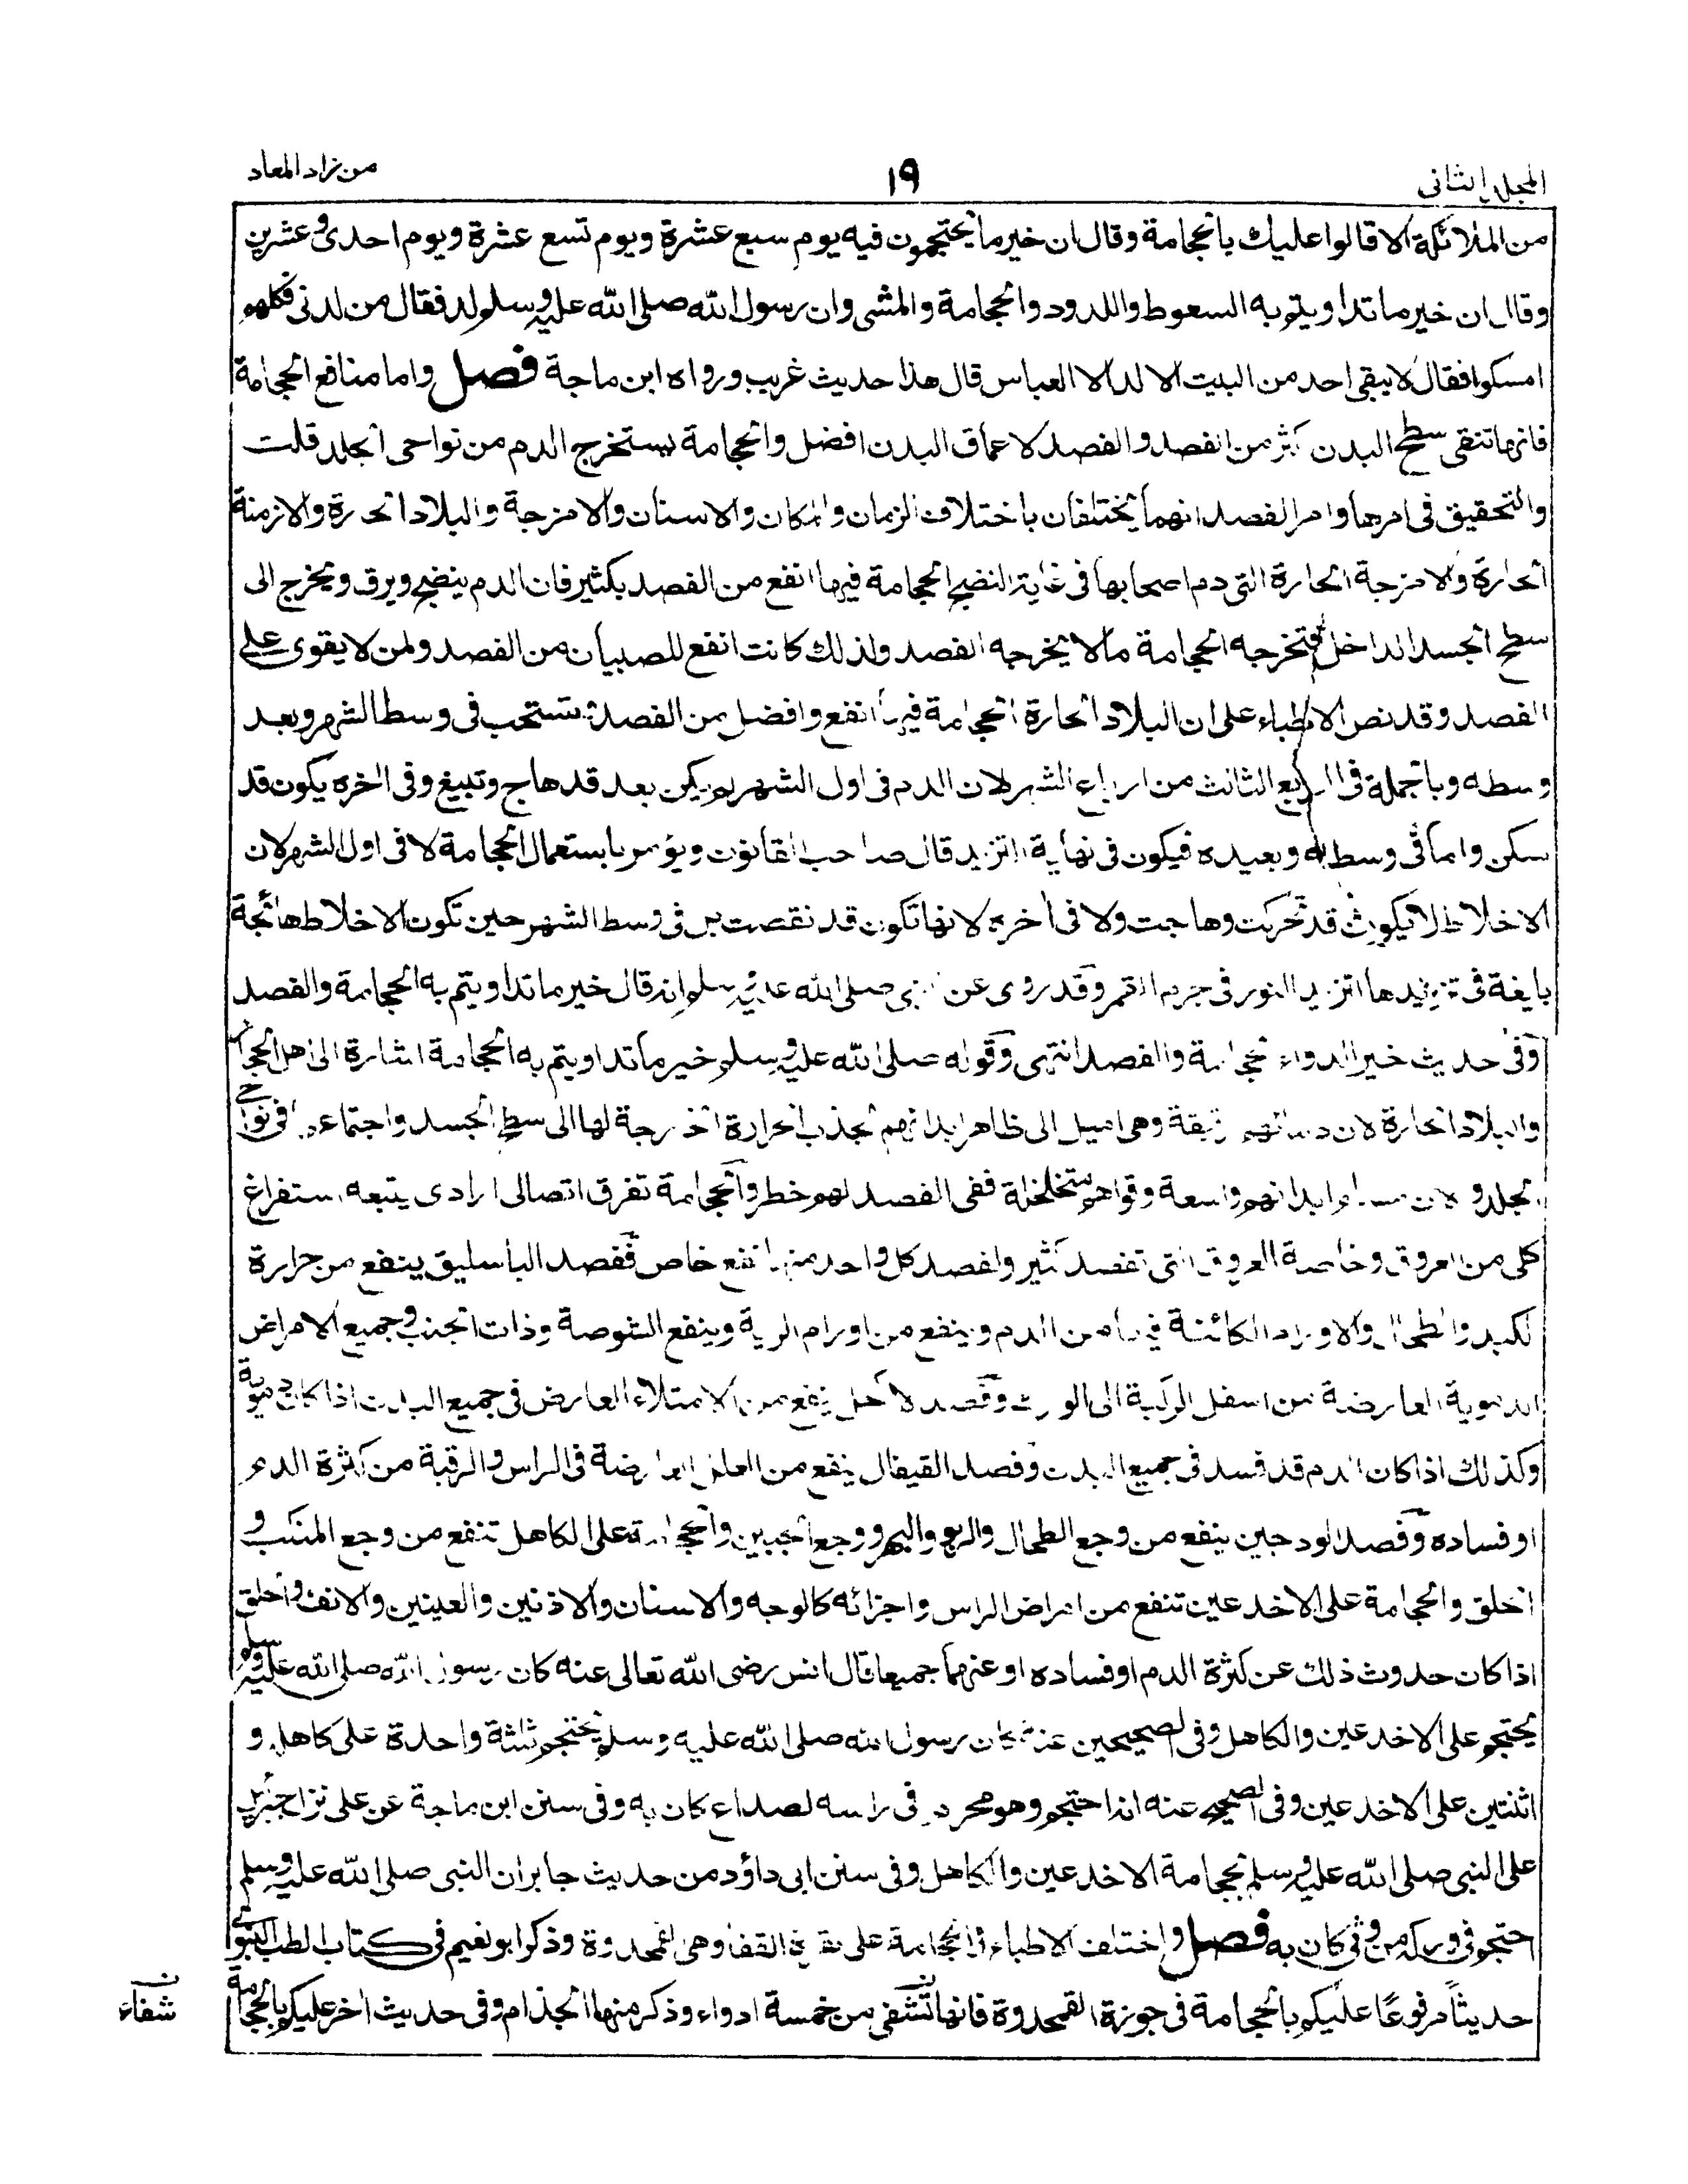 المجلد الثانى
١٩
من زاد المعاد
من الملائكة الا قالوا عليك بالحجامة وقال ان خير ما يحتجمون فيه يوم سبع عشرة ويوم تسع عشرة ويوم احدى وعشرين
وقال ان خير ما تداويتم به السعوط واللدود والحجامة والمشى وان رسول الله صلى الله عليه وسلم لد فقال من لدنى فكلهم
امسكوا فقال لا يبقى احد من البيت الا لد الا العباس قال هذا حديث غريب ورواه ابن ماجة فصل واما منافع الحجامة
فانها تنقى سطح البدن اكثر من الفصد والفصد لاعماق البدن افضل والحجامة يستخرج الدم من نواحى الجلد قلت
والتحقيق فى امرها وامر الفصد انهما يختلفان باختلاف الزمان والمكان والاسنان والامزجة والبلاد الحارة والازمنة
الحارة والامزجة الحارة التى دم اصحابها فى غاية النضج الحجامة فيها انفع من الفصد بكثير فان الدم ينضج ويرق ويخرج الى
سطح الجسد الداخل فتخرجه الحجامة مالا يخرجه الفصد ولذلك كانت انفع للصبيان من الفصد ولمن لا يقوى على
الفصد وقد نص الاطباء على ان البلاد الحارة الحجامة فيها انفع وافضل من الفصد تستحب فى وسط الشهر وبعد
وسطه وبالجملة فى الربع الثالث من ارباع الشهر لان الدم فى اول الشهر لم يكن بعد قد هاج وتبيغ وفى اخره يكون قد
سكن واما فى وسطه وبعيده فيكون فى نهاية التزيد قال صاحب القانون ويؤمر باستعمال الحجامة لا فى اول الشهر لان
الاخلاط لا يكون قد تحركت وهاجت ولا فى اخره لانها تكون قد نقصت بل فى وسط الشهر حين تكون الاخلاط هائجة
بايغة فى تزيدها لتزيد النور فى جرم القمر وقد روى عن النبى صلى الله عليه وسلم انه قال خير ما تداويتم به الحجامة والفصد
وفى حديث خير الدواء الحجامة والفصد انتهى وقوله صلى الله عليه وسلم خير ما تداويتم به الحجامة اشارة الى اهل الحجاز
والبلاد الحارة لان دمائهم رقيقة وهى اميل الى ظاهر ابدانهم لجذب الحرارة الخارجة لها الى سطح الجسد واجتماعها فى نواحى
الجلد ولان مسام ابدانهم واسعة وقواهم متخلخلة ففى الفصد لهم خطر والحجامة تفرق اتصالى ارادى يتبعه استفراغ
كلى من العروق وخاصة العروق التى تفصد كثير ولفصد كل واحد منها نفع خاص ففصد الباسليق ينفع من حرارة
الكبد والطحال والاورام الكائنة فيهما من الدم وينفع من اورام الرية وينفع الشوصة وذات الجنب وجميع الامراض
الدموية العارضة من اسفل الركبة الى الورك وفصد الاكحل ينفع من الامتلاء العارض فى جميع البدن اذا كان دمويا
وكذلك اذا كان الدم قد فسد فى جميع البدن وفصد القيفال ينفع من العلل العارضة فى الراس والرقبة من كثرة الدم
او فساده وفصد الودجين ينفع من وجع الطحال والربو والبهر ووجع الجبين والحجامة على الكاهل تنفع من وجع المنكب و
الحلق والحجامة على الاخدعين تنفع من امراض الراس واجزائه كالوجه والاسنان والاذنين والعينين والانف والحلق
اذا كان حدوث ذلك عن كثرة الدم او فساده او عنهما جميعا قال انس رضى الله تعالى عنه كان رسول الله صلى الله عليه وسلم
يحتجم على الاخدعين والكاهل وفى الصحيحين عنه كان رسول الله صلى الله عليه وسلم يحتجم ثلثة واحدة على كاهله و
اثنتين على الاخدعين وفى الصحيح عنه انه احتجم وهو محرم فى راسه لصداع كان به وفى سنن ابن ماجة عن على نزل جبريل
على النبى صلى الله عليه وسلم بحجامة الاخدعين والكاهل وفى سنن ابى داؤد من حديث جابر ان النبى صلى الله عليه وسلم
احتجم فى وركه من وثى كان به فصل واختلف الاطباء فى الحجامة على نقرة القفا وهى القمحدوة وذكر ابو نعيم فى كتاب الطب النبوى
حديثاً مرفوعًا عليكم بالحجامة فى جوزة القمحدوة فانها تشفى من خمسة ادواء وذكر منها الجذام وفى حديث اخر عليكم بالحجامة
شفاء